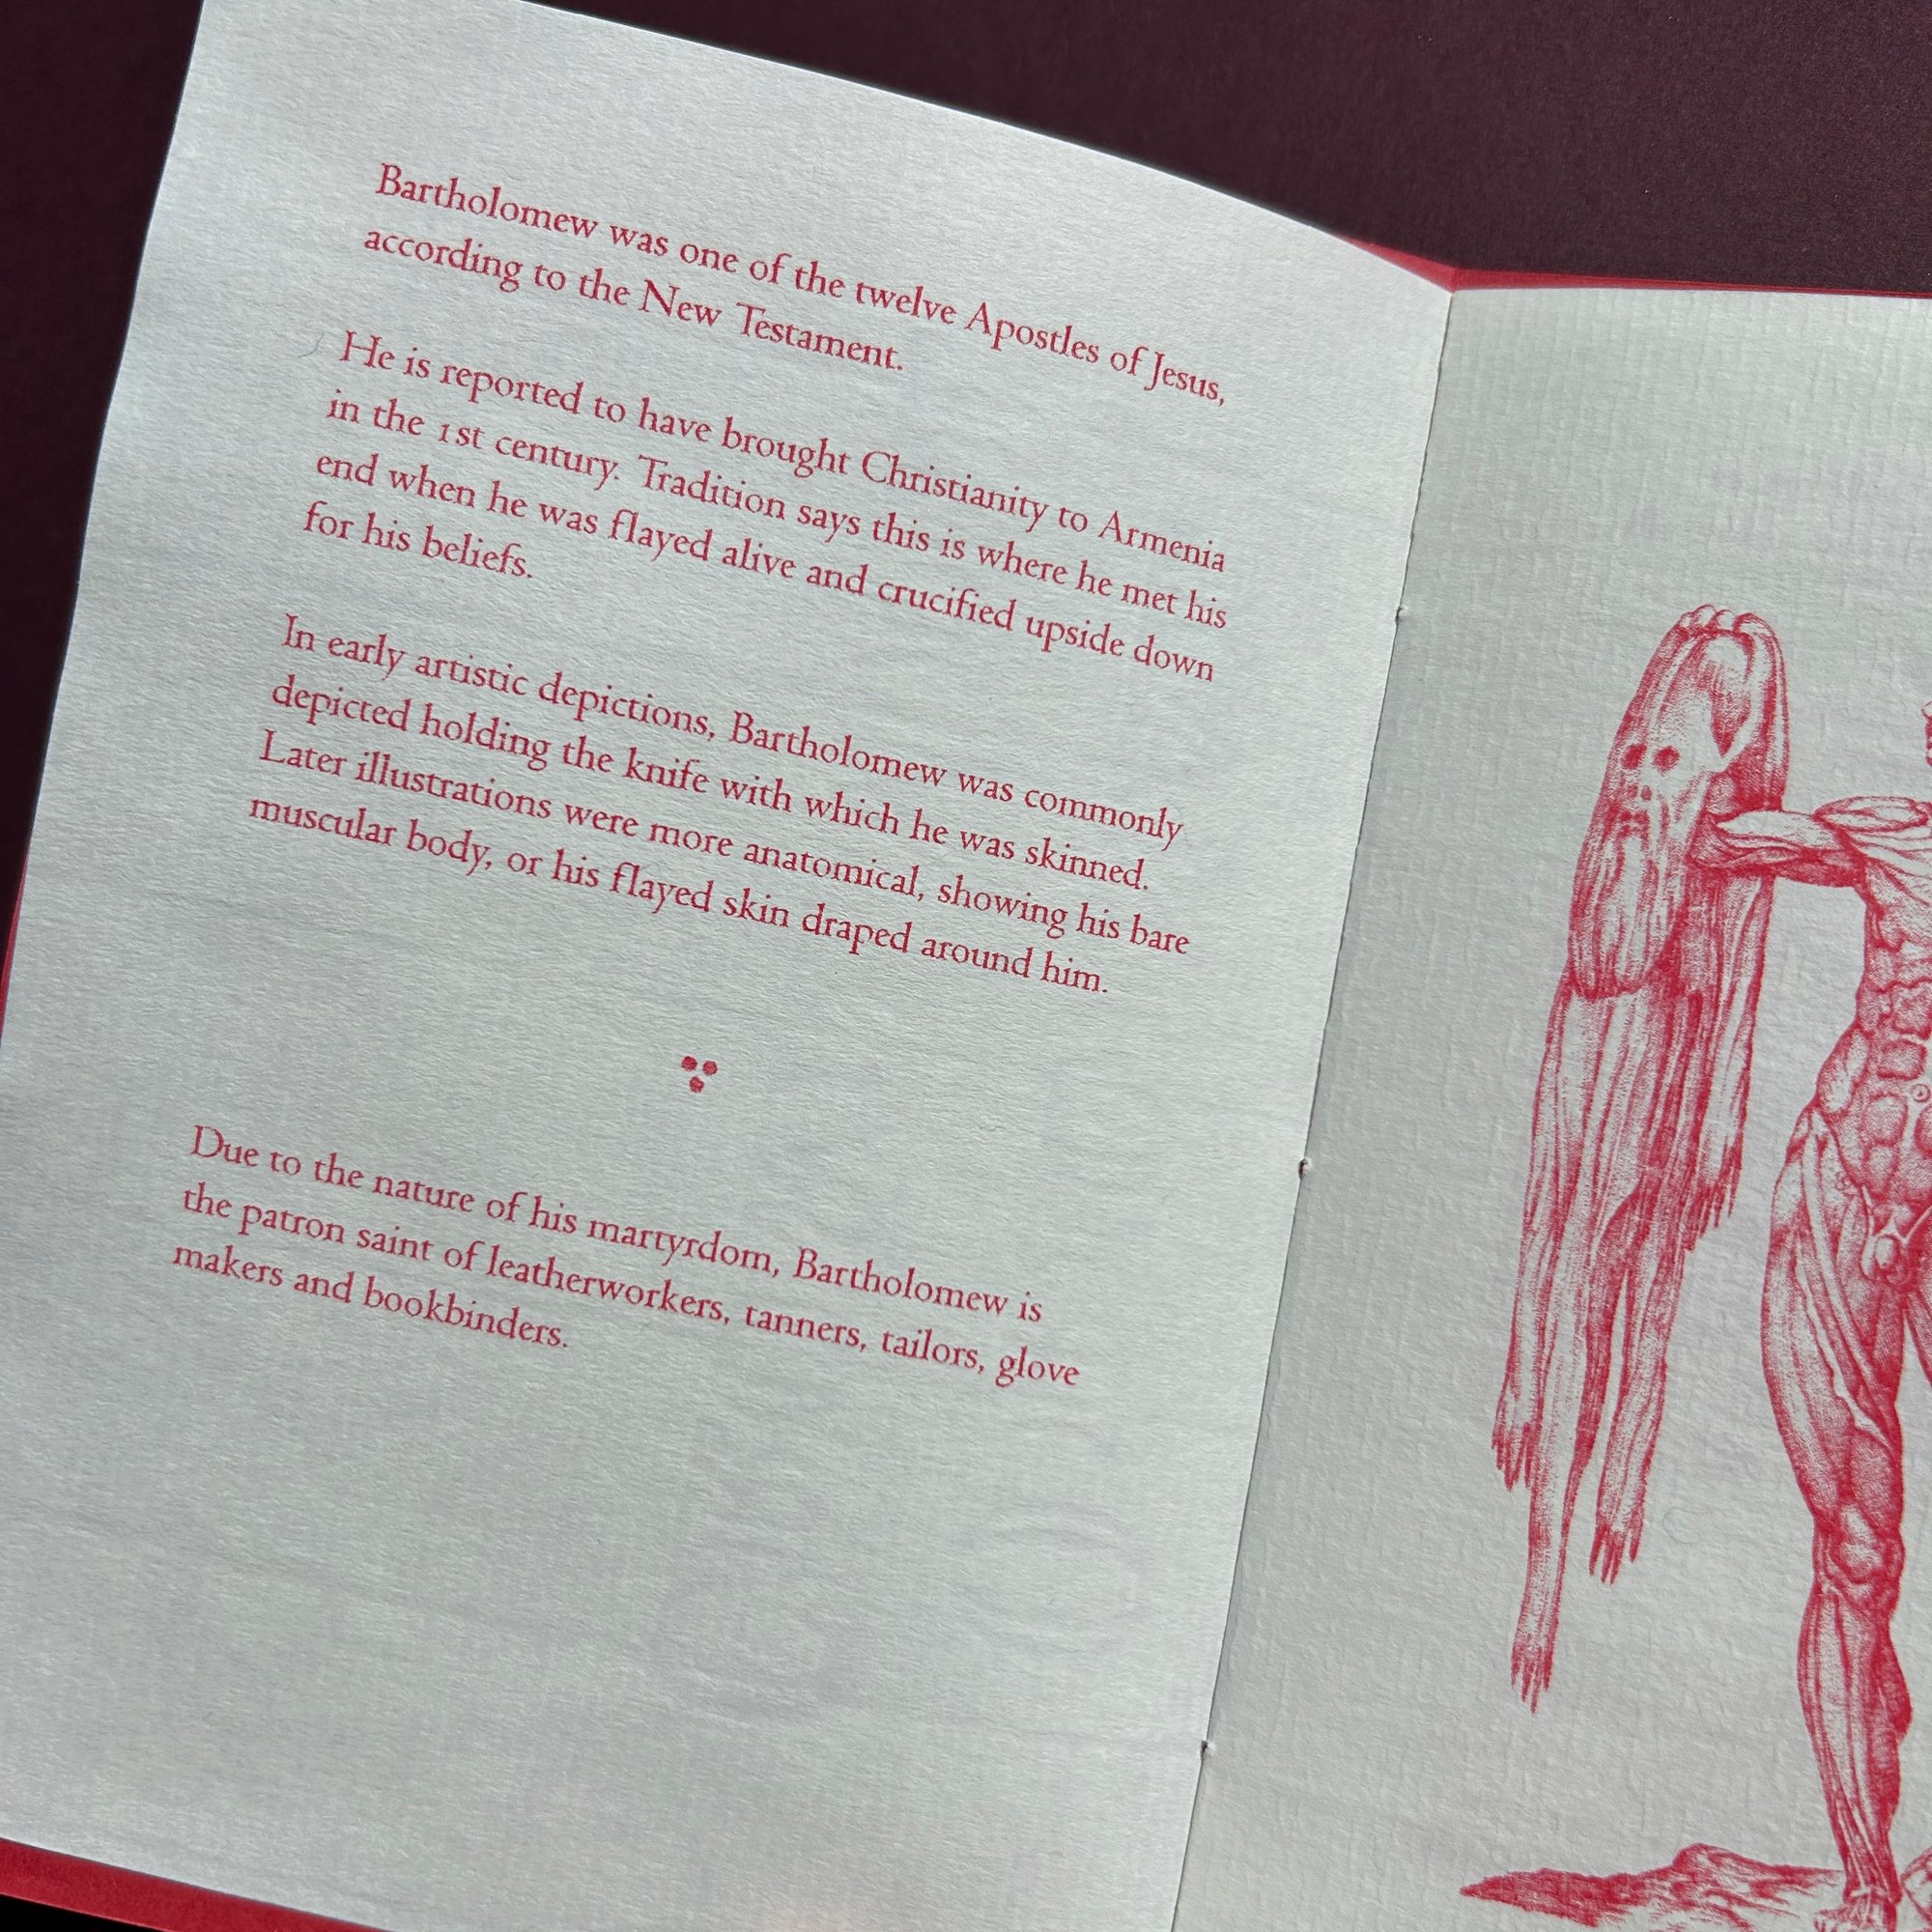 Bartholomew was one of the twelve Apostles of Jesus,
according to the New Testament.
He is reported to have brought Christianity to Armenia
in the 1st century. Tradition says this is where he met his
end when he was flayed alive and crucified upside down
for his beliefs.
In early artistic depictions, Bartholomew was commonly
depicted holding the knife with which he was skinned.
Later illustrations were more anatomical, showing his bare
muscular body, or his flayed skin draped around him.
Due to the nature of his martyrdom, Bartholomew is
the patron saint of leatherworkers, tanners, tailors, glove
makers and bookbinders.